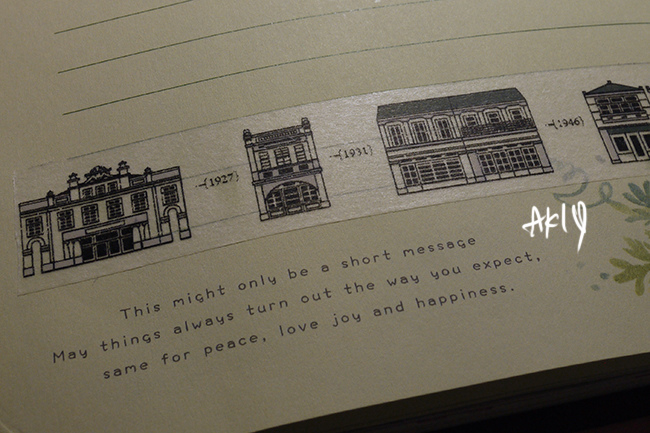 {1927}
{1931}
{1946}
This might only be a short message
May things always turn out the way you expect,
same for peace, love joy and happiness.